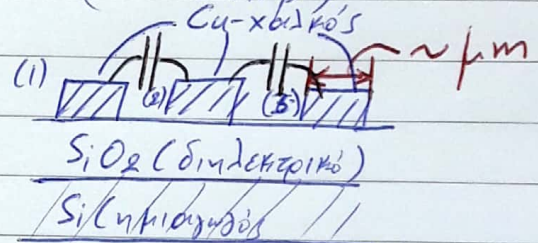 Cu-χαλκός
~ μm
(1) (2) (3)
SiO2 (διηλεκτρικό)
Si (ημιαγωγός